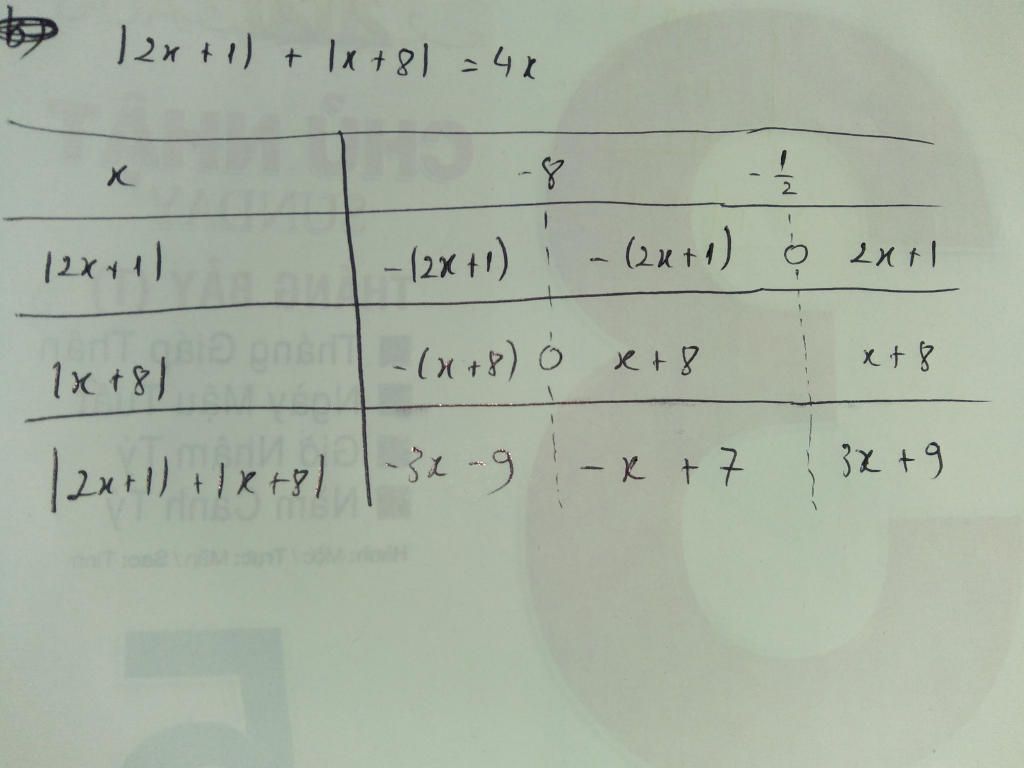 b)
|2x+1| + |x+8| = 4x
x -8 -1/2
|2x+1| -(2x+1) -(2x+1) 0 2x+1
|x+8| -(x+8) 0 x+8 x+8
|2x+1| + |x+8| -3x-9 -x+7 3x+9
CHỦ NHẬT
SUNDAY
THÁNG BẢY (1)
Tháng Giáp Thân
Ngày Mậu Tuất
Giờ Nhâm Tý
Năm Canh Tý
Hành: Mộc / Trực: Mãn / Sao: Tinh
5